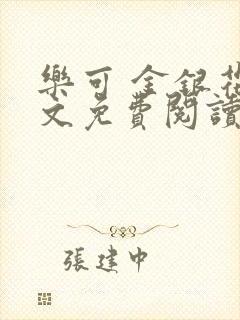 樂可 金銀花
文免費閱讀
張建中